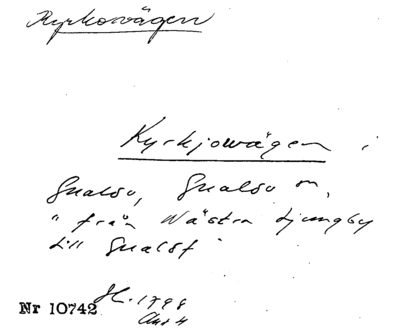 Kyrkovägen
Kyrkjovägen i
Gualöv, Gualöv sn,
" från Wästra Ljungby
till Gualöf
Nr 10742 H. 1798
Akt 4